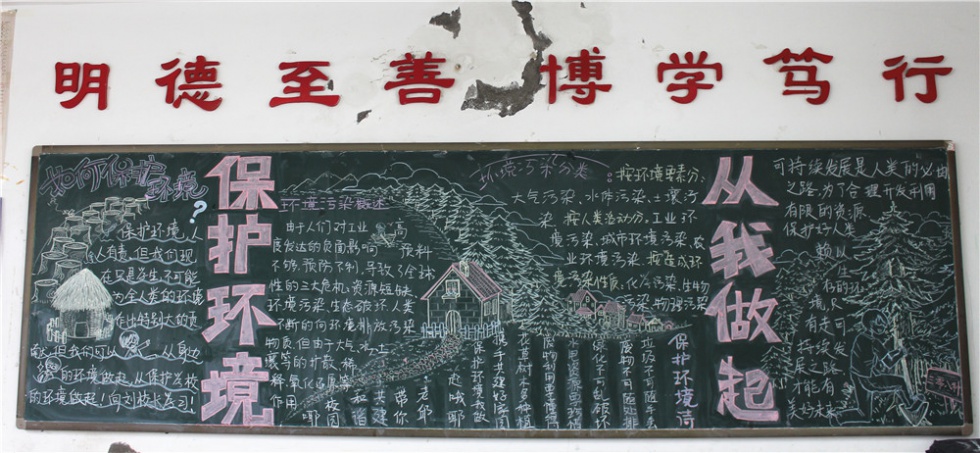 明德至善 博学笃行
如何保护
环境
?
保护环境,人
人有责,但我们现
在只是学生,不可能
为全人类的环境
作出特别大的贡
献,但我们可以 从身边
的环境做起,从保护学校
的环境做起!向刘校长学习!
保护环境
环境污染概述
由于人们对工业
发达的负面影响 预料
不够,预防不利,导致了全球
性的三大危机:资源短缺
环境污染.生态破坏.人类
不断的向环境排放污染
物质.但由于大气、水、土
壤等的扩散、稀
释、氧化还原等
作用
环境污染分类
:按环境要素分:
大气污染、水体污染、土壤污
染.按人类活动分:工业环
境污染、城市环境污染、农
业环境污染.按造成环
境污染性质:化学污染.生物
污染.物理污染
保护环境诗
垃圾不可随手丢
废物不可随处排
绿化不可乱破坏
花草树木多种植
携手共建好家园
保护环境我做
从我做起
可持续发展是人类的必由
之路.为了合理开发利用
有限的资源
保护好人类
赖以
生
存的环
境,只
有走可
持续发
展之路
才能有
美好未来